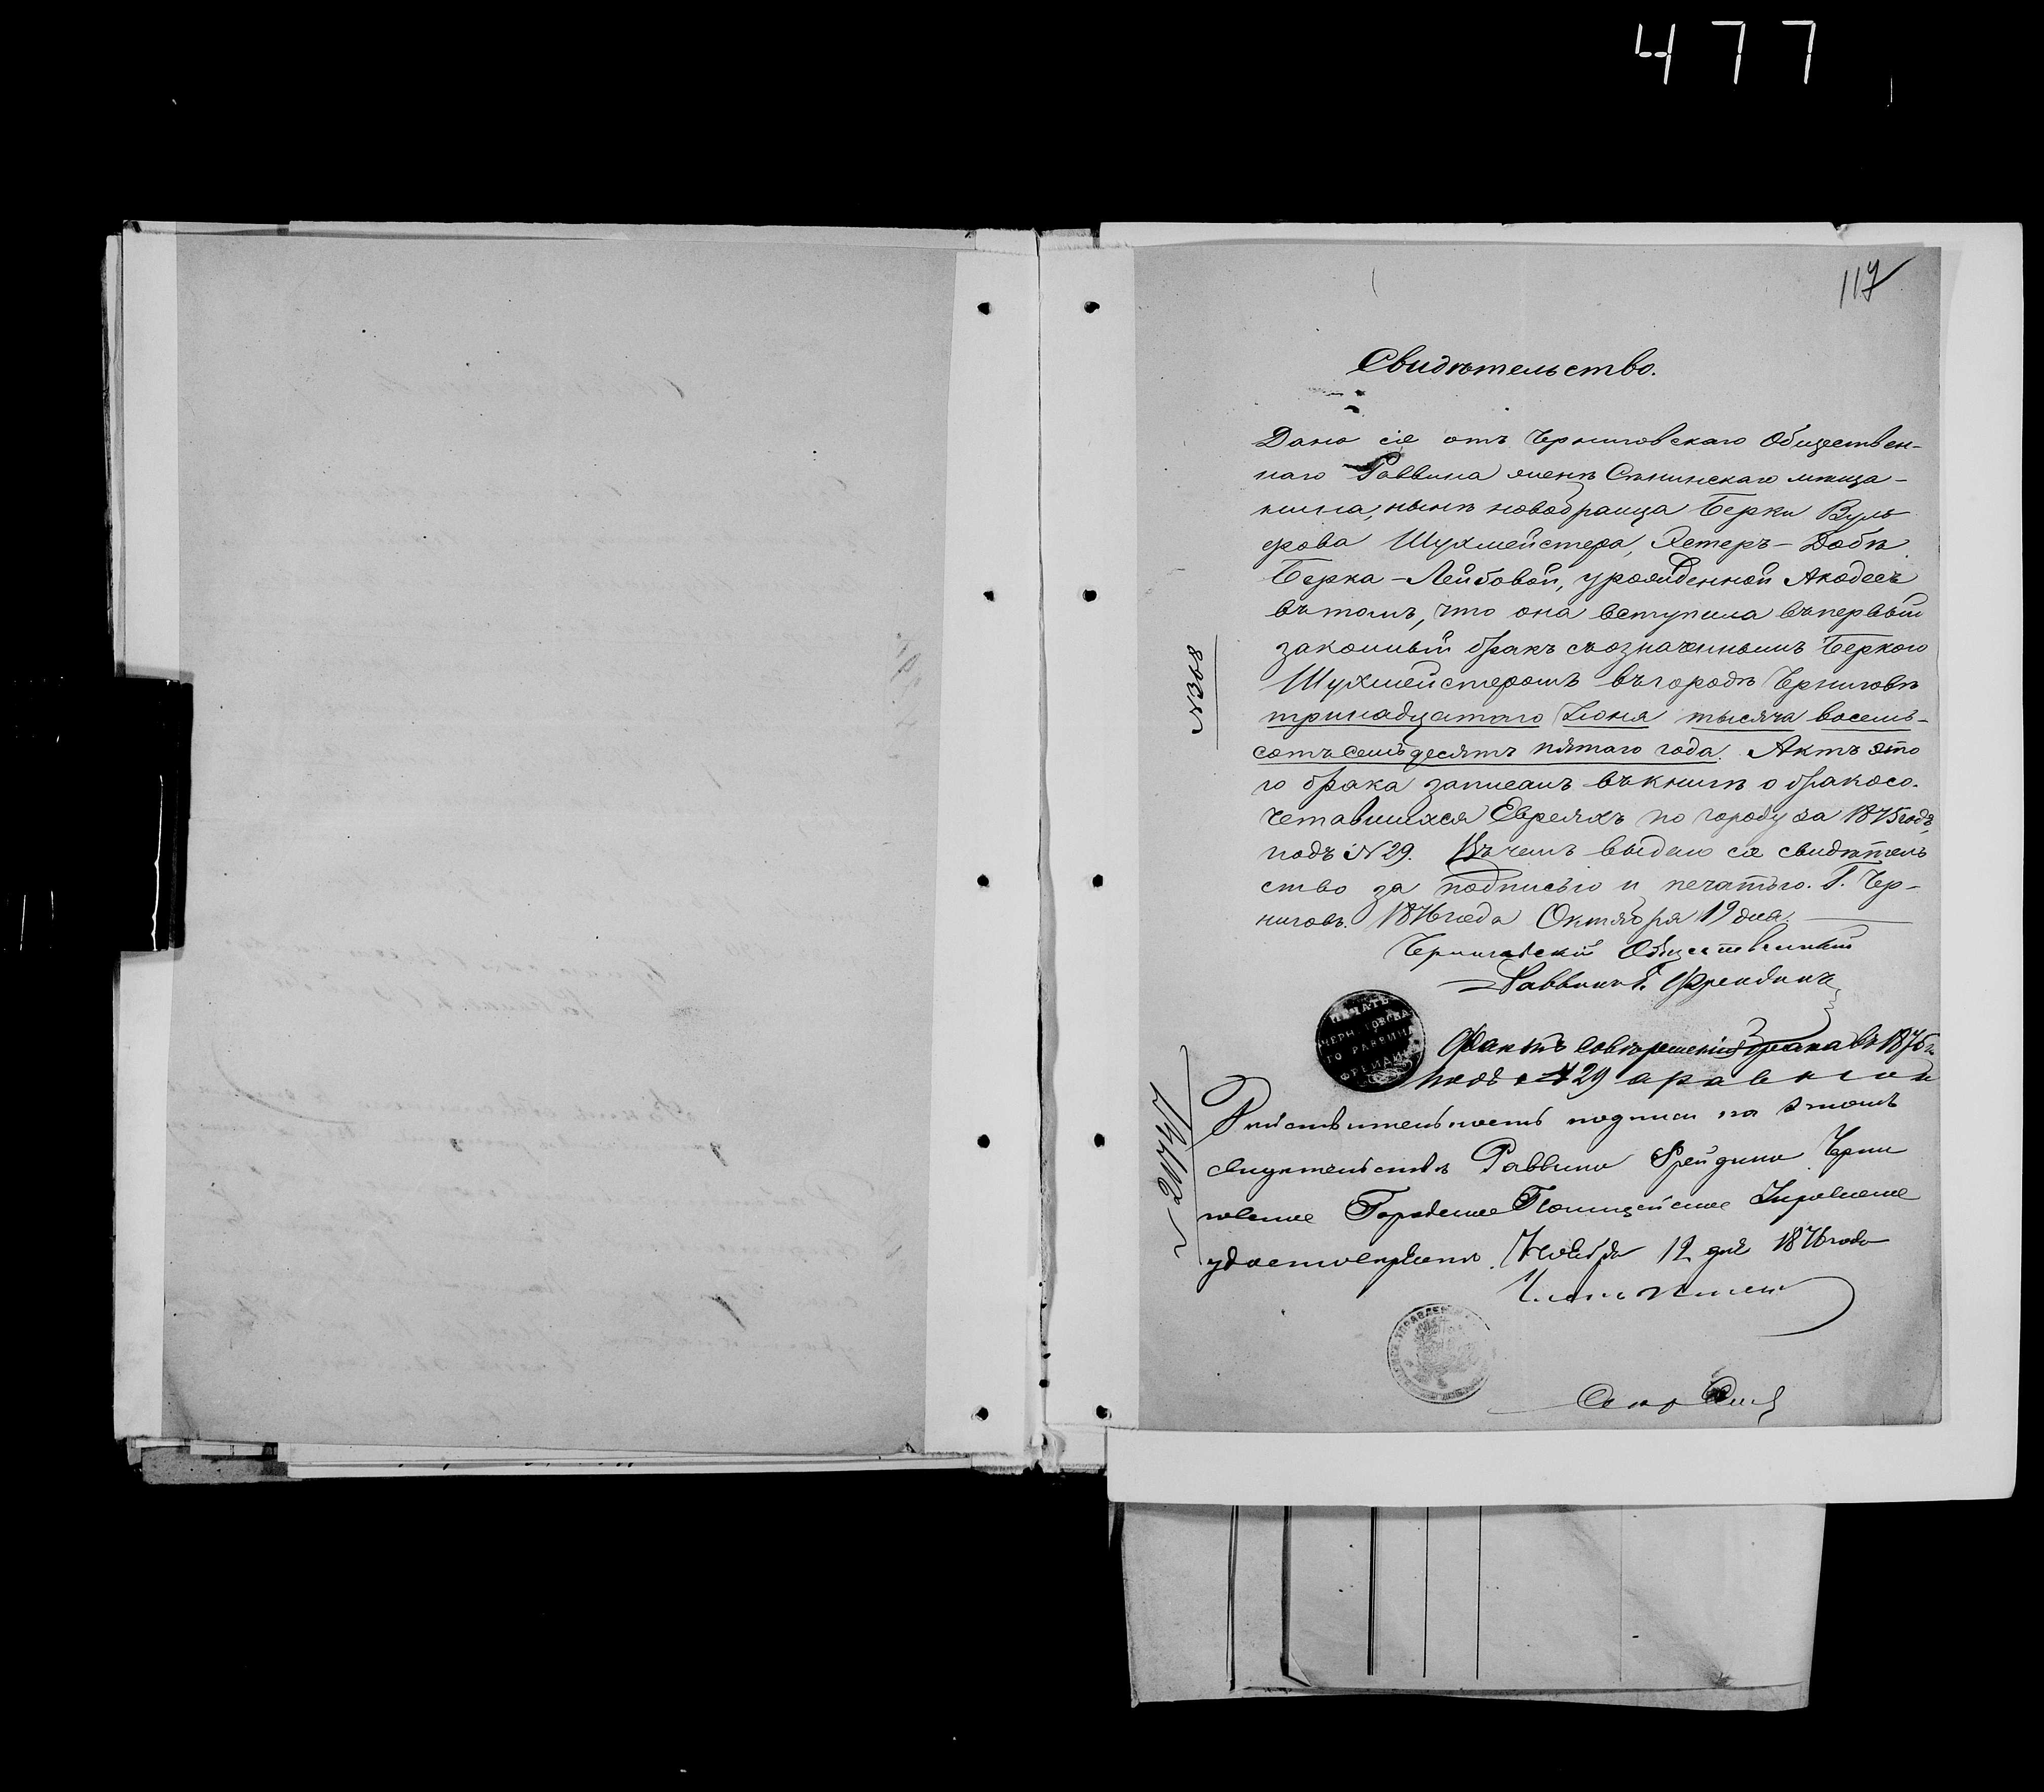 477
117
Свидѣтельство.
Дано сіе отъ Черниговскаго Обществен-
наго Раввина женѣ Сѣнинскаго мѣща-
нина, нынѣ новобранца Берки Вуль-
фова Шухмейстера, Эстеръ-Добѣ
Берка-Лейбовой, урожденной
въ томъ, что она вступила въ первый
законный бракъ съ означеннымъ Беркою
Шухмейстеромъ въ городѣ Черниговѣ
тринадцатаго Іюня тысяча восемь-
сотъ семьдесятъ пятаго года. Актъ это
го брака записанъ въ книгѣ о бракосо-
четавшихся Евреяхъ по городу за 1875 годъ,
подъ №29. Въ чемъ выдаю сіе свидѣтель
ство за подписью и печатью. Г. Чер-
ниговъ. 1876 года Октября 19 дня.
№308
Черниговскій Общественный
Раввинъ Г. Фрейдинъ
ПЕЧАТЬ
ЧЕРНИГОВСКА
ГО РАВВИНА
ФРЕЙДИНА
Фактъ совершенія брака въ 1875 г.
подъ №29
№ 20747
Дѣйствительность подписи на этомъ
свидѣтельствѣ Раввина Фрейдина Черни
говское Городское Полицейское Управленіе
удостовѣряетъ. Ноября 12 дня 1876 года